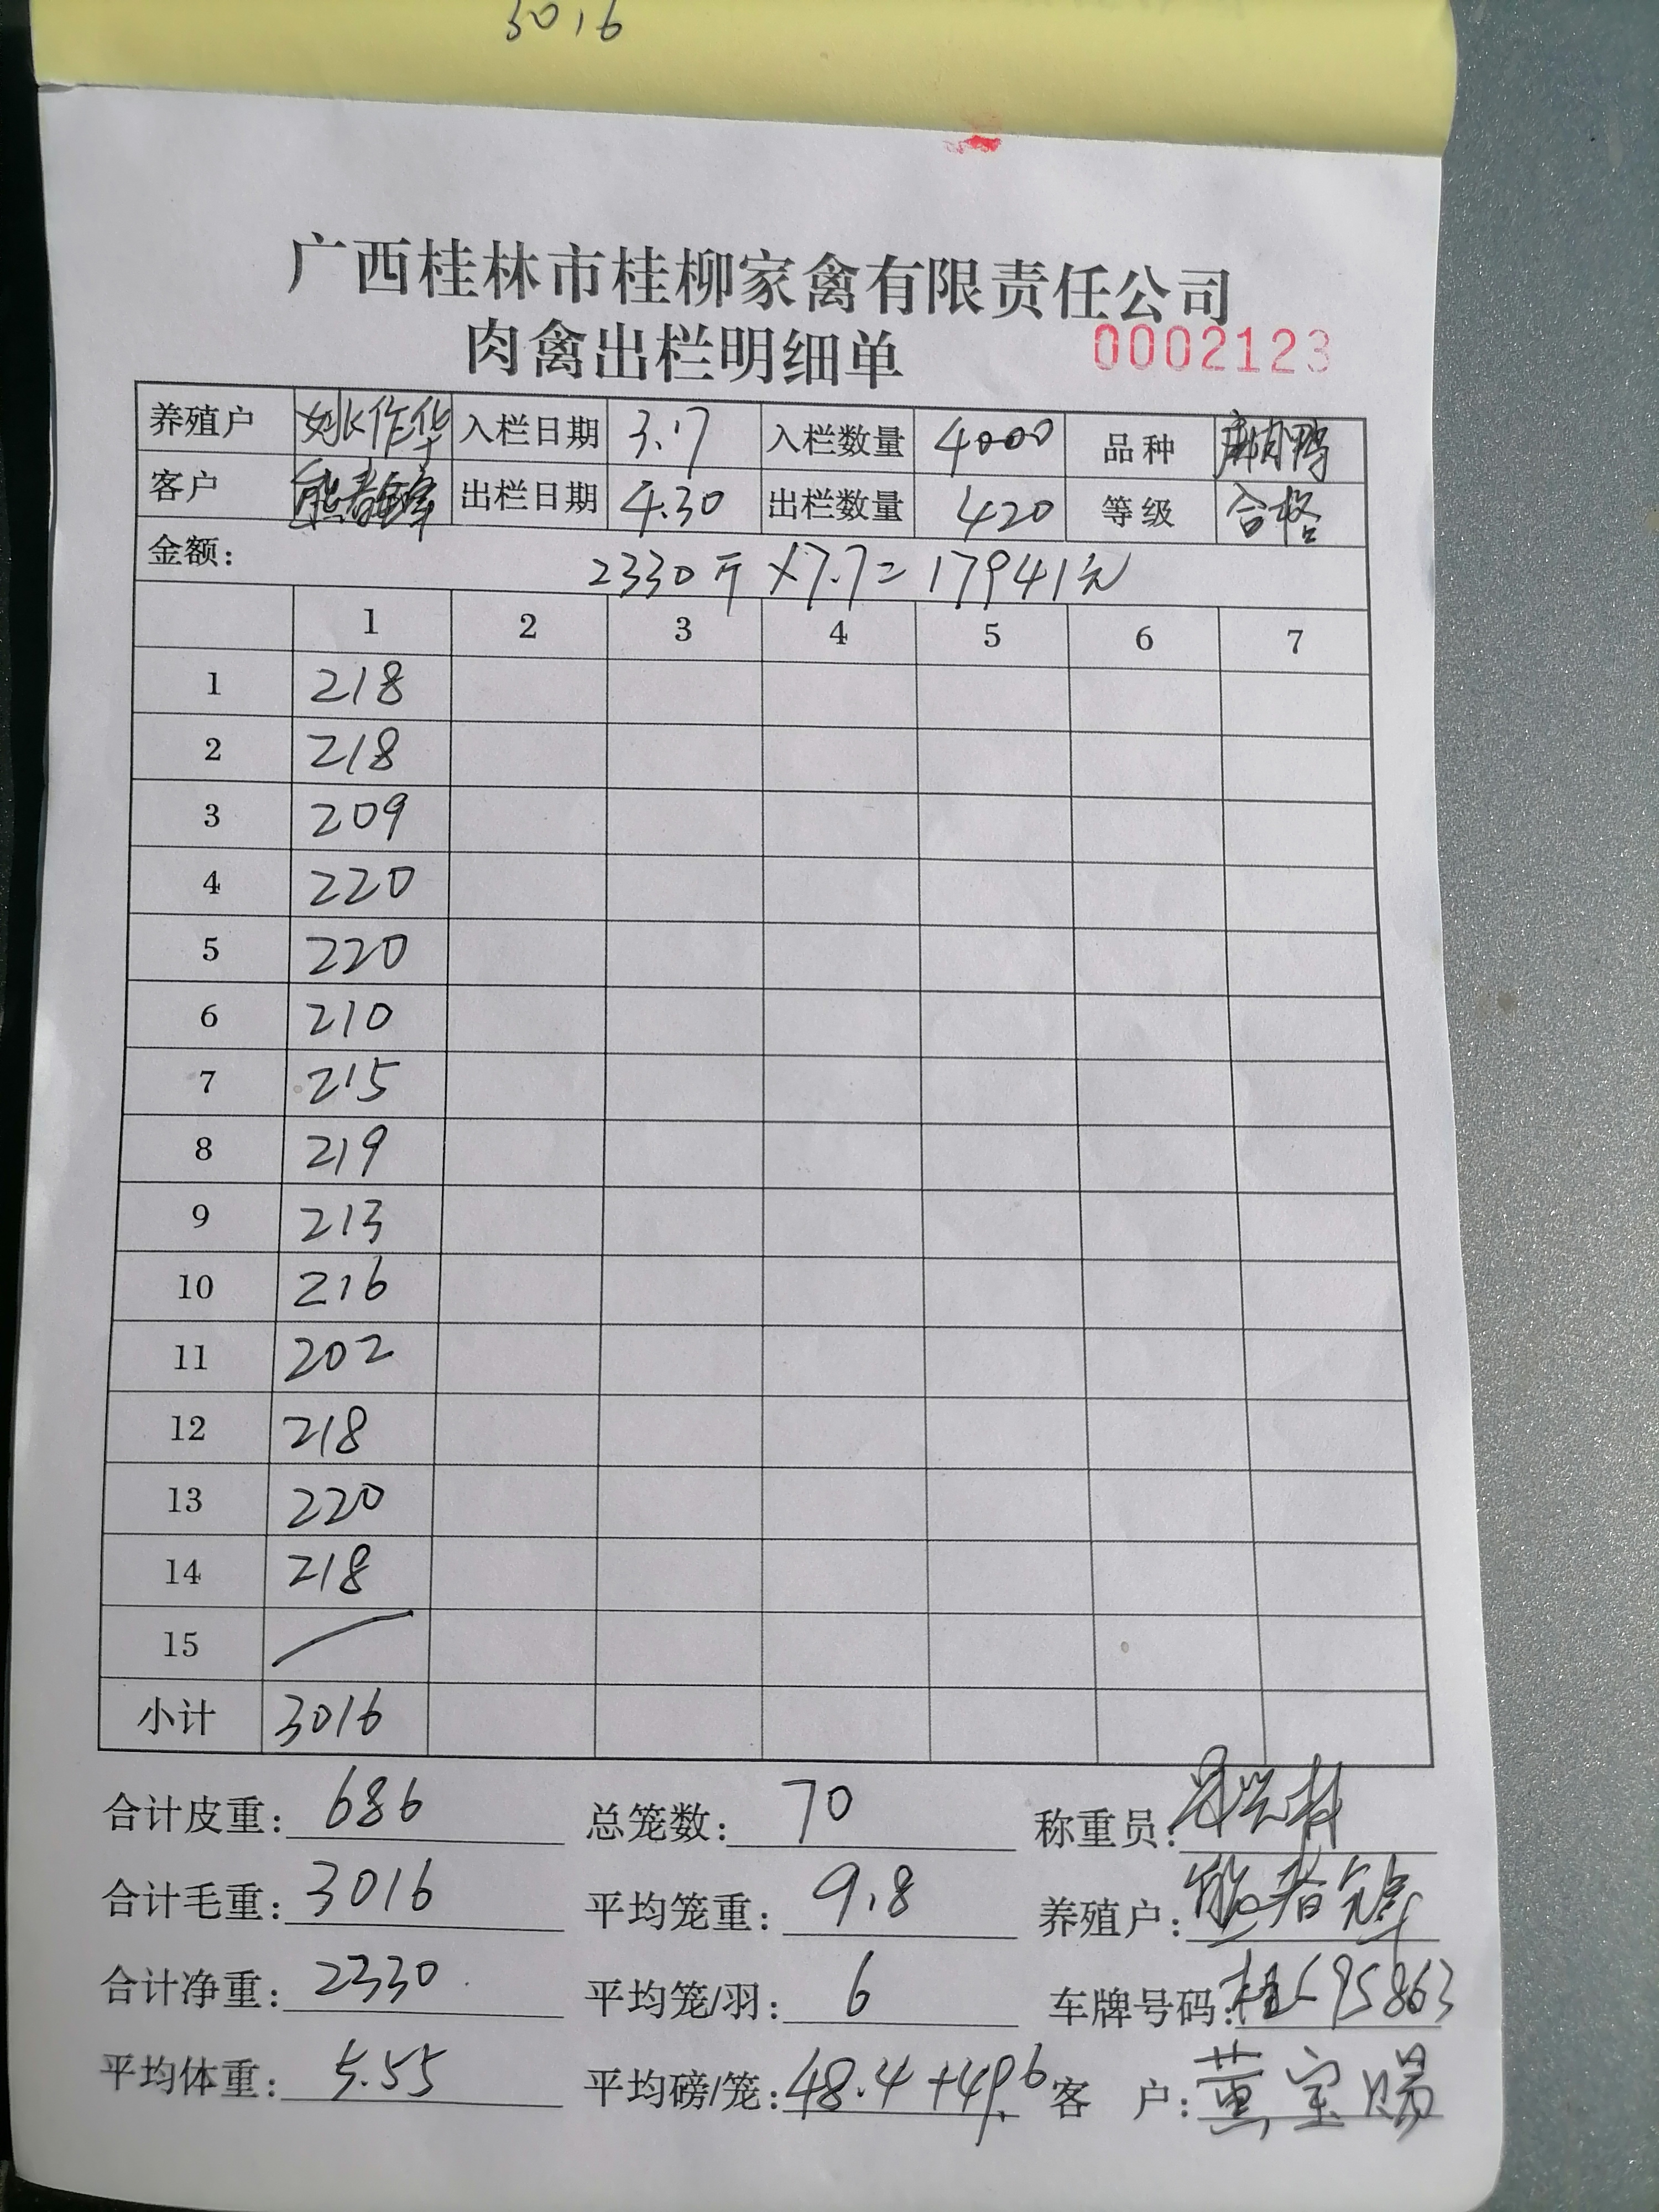 3016
广西桂林市桂柳家禽有限责任公司
肉禽出栏明细单 0002123
养殖户 姚作华 入栏日期 3.17 入栏数量 4000 品种
客户 出栏日期 4.30 出栏数量 420 等级 合格
金额: 2330斤×7.7=17941元
1 2 3 4 5 6 7
1 218
2 218
3 209
4 220
5 220
6 210
7 215
8 219
9 213
10 216
11 202
12 218
13 220
14 218
15
小计 3016
合计皮重: 686 总笼数: 70 称重员:
合计毛重: 3016 平均笼重: 9.8 养殖户:
合计净重: 2330 平均笼/羽: 6 车牌号码:
平均体重: 5.55 平均磅/笼: 48.4+49.6 客 户: